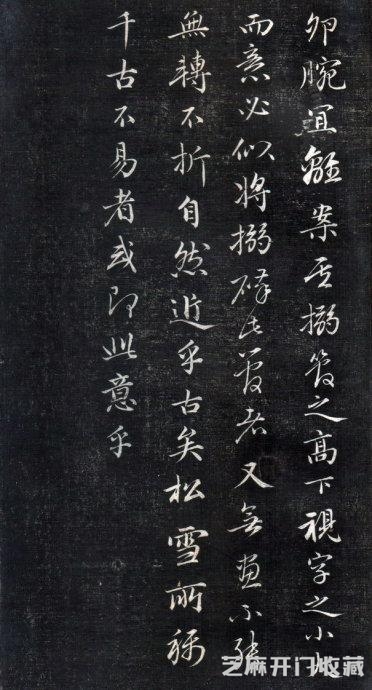 即腕宜離案其搦管之高下視字之小大
而意必似將搦碎此管者又無畫不轉
無轉不折自然近乎古矣松雪所稱
千古不易者或即此意乎
芝麻开门收藏